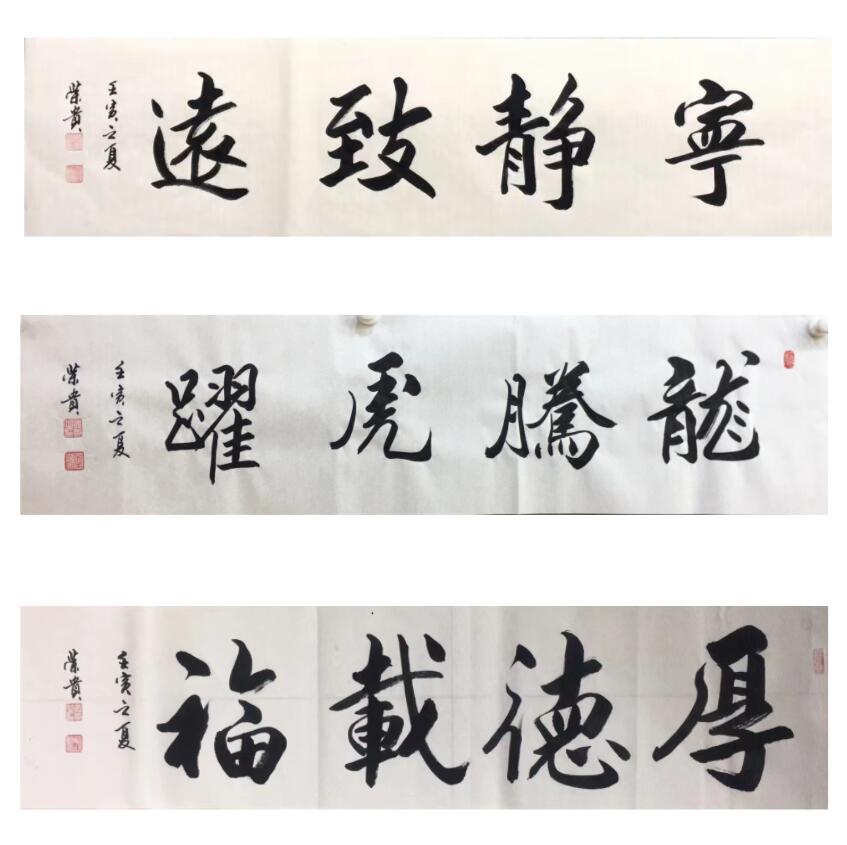 寧靜致遠
壬寅之夏
榮貴
龍騰虎躍
壬寅之夏
榮貴
厚德載福
壬寅之夏
榮貴